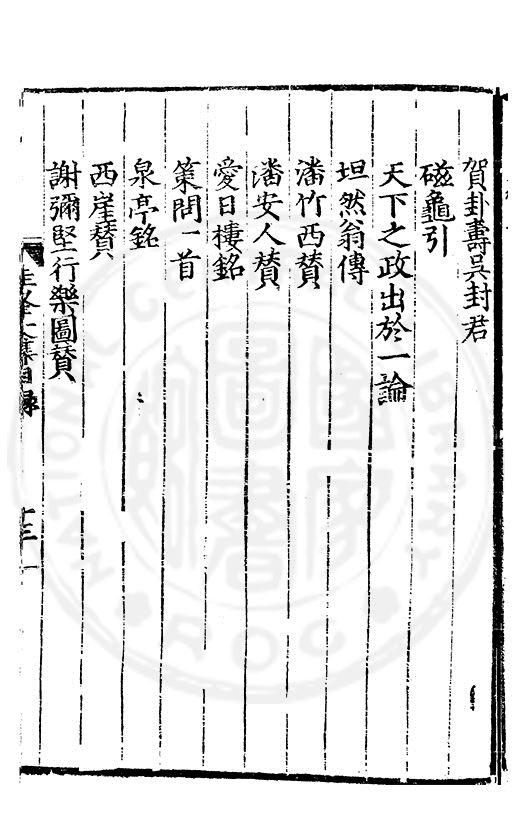 賀卦壽吳封君
磁龜引
天下之政出於一論
坦然翁傳
潘竹西贊
潘安人贊
愛日樓銘
策問一首
泉亭銘
西崖贊
謝彌堅行樂圖贊
圭峯文集目錄